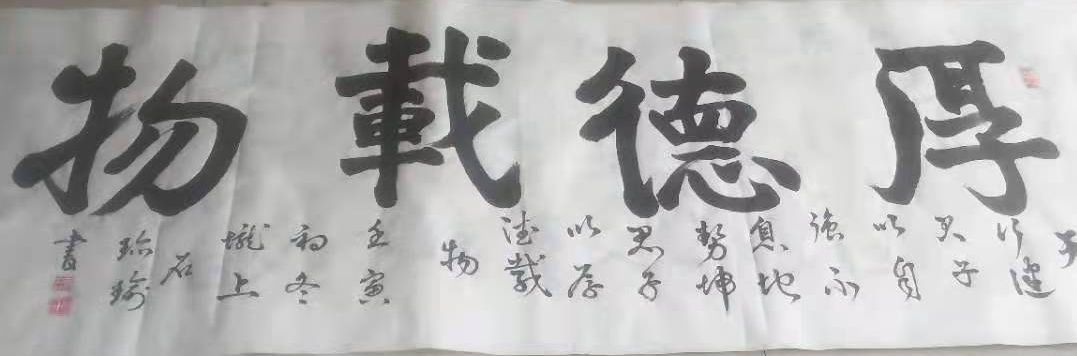 厚德載物
天
行健
君子
以自
強不
息地
勢坤
君子
以厚
德載
物
壬寅
初冬
壠上
石
書